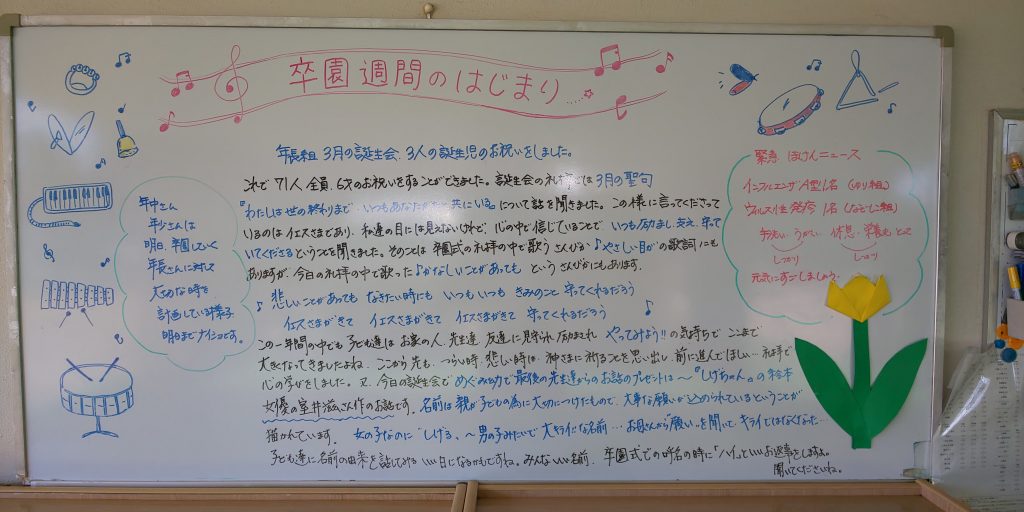 卒園週間のはじまり....☆
年長組 3月の誕生会、3人の誕生児のお祝いをしました。
これで71人全員、6才のお祝いをすることができました。誕生会の礼拝では3月の聖句
『わたしは世の終わりまで いつもあなたがたと共にいる』について話を聞きました。この様に言ってくださって
いるのはイエスさまであり、私達の目には見えないけれど、心の中で信じていることで いつも励まし、支え、守って
いてくださるということを聞きました。そのことは 卒園式の礼拝の中で歌う さんびか♪やさしい目が♪の歌詞にも
ありますが、今日の礼拝の中で歌った♪かなしいことがあっても というさんびかにもあります。
♪ 悲しいことがあっても なきたい時にも いつもいつも きみのこと 守ってくれるだろう
イエスさまがきて イエスさまがきて イエスさまがきて 守ってくれるだろう ♪
この一年間の中でも子ども達は お家の人、先生達、友達に見守られ 励まされ やってみよう!!の気持ちで ここまで
大きくなってきましたよね。ここから先も、つらい時、悲しい時は、神さまに祈ることを思い出し、前に進んでほしい…礼拝で
心の学びをしました。又、今日の誕生会で めぐみ幼で最後の先生達からのお話のプレゼントは〜『しげちゃん』の絵本
女優の室井滋さん作のお話です。名前は親が子どもの為に大切につけたもので、大事な願いが込められているということが
描かれています。 女の子なのに"しげる"〜男の子みたいで大キライな名前…お母さんから"願い"を聞いて キライではなくなった…
子ども達に名前の由来を話してみる いい日になるかもですね。みんないい名前、卒園式での呼名の時に「ハイ」といいお返事をしますよ。
聞いてくださいね。
年中さん
年少さんは
明日、卒園していく
年長さんに対して
大切な時を
計画している様子
明日までナイショです。
緊急 ほけんニュース
インフルエンザA型1名(ゆり組)
ウィルス性発疹 1名(なでしこ組)
手洗い うがい 休息・栄養も とって
しっかり しっかり
元気にすごしましょう。